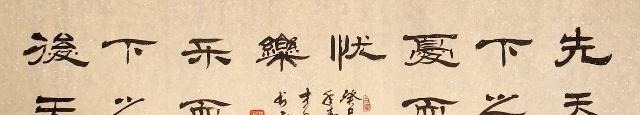 先天
下之
憂而
忧
後天
下之
乐而
樂
癸巳